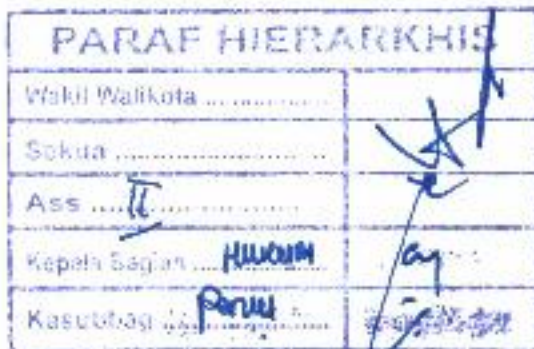 PARAF HIERARKHIS
Wakil Walikota ................
Sekda ............................
Ass .... II ......................
Kepala Bagian .... Hukum
Kasubbag ....